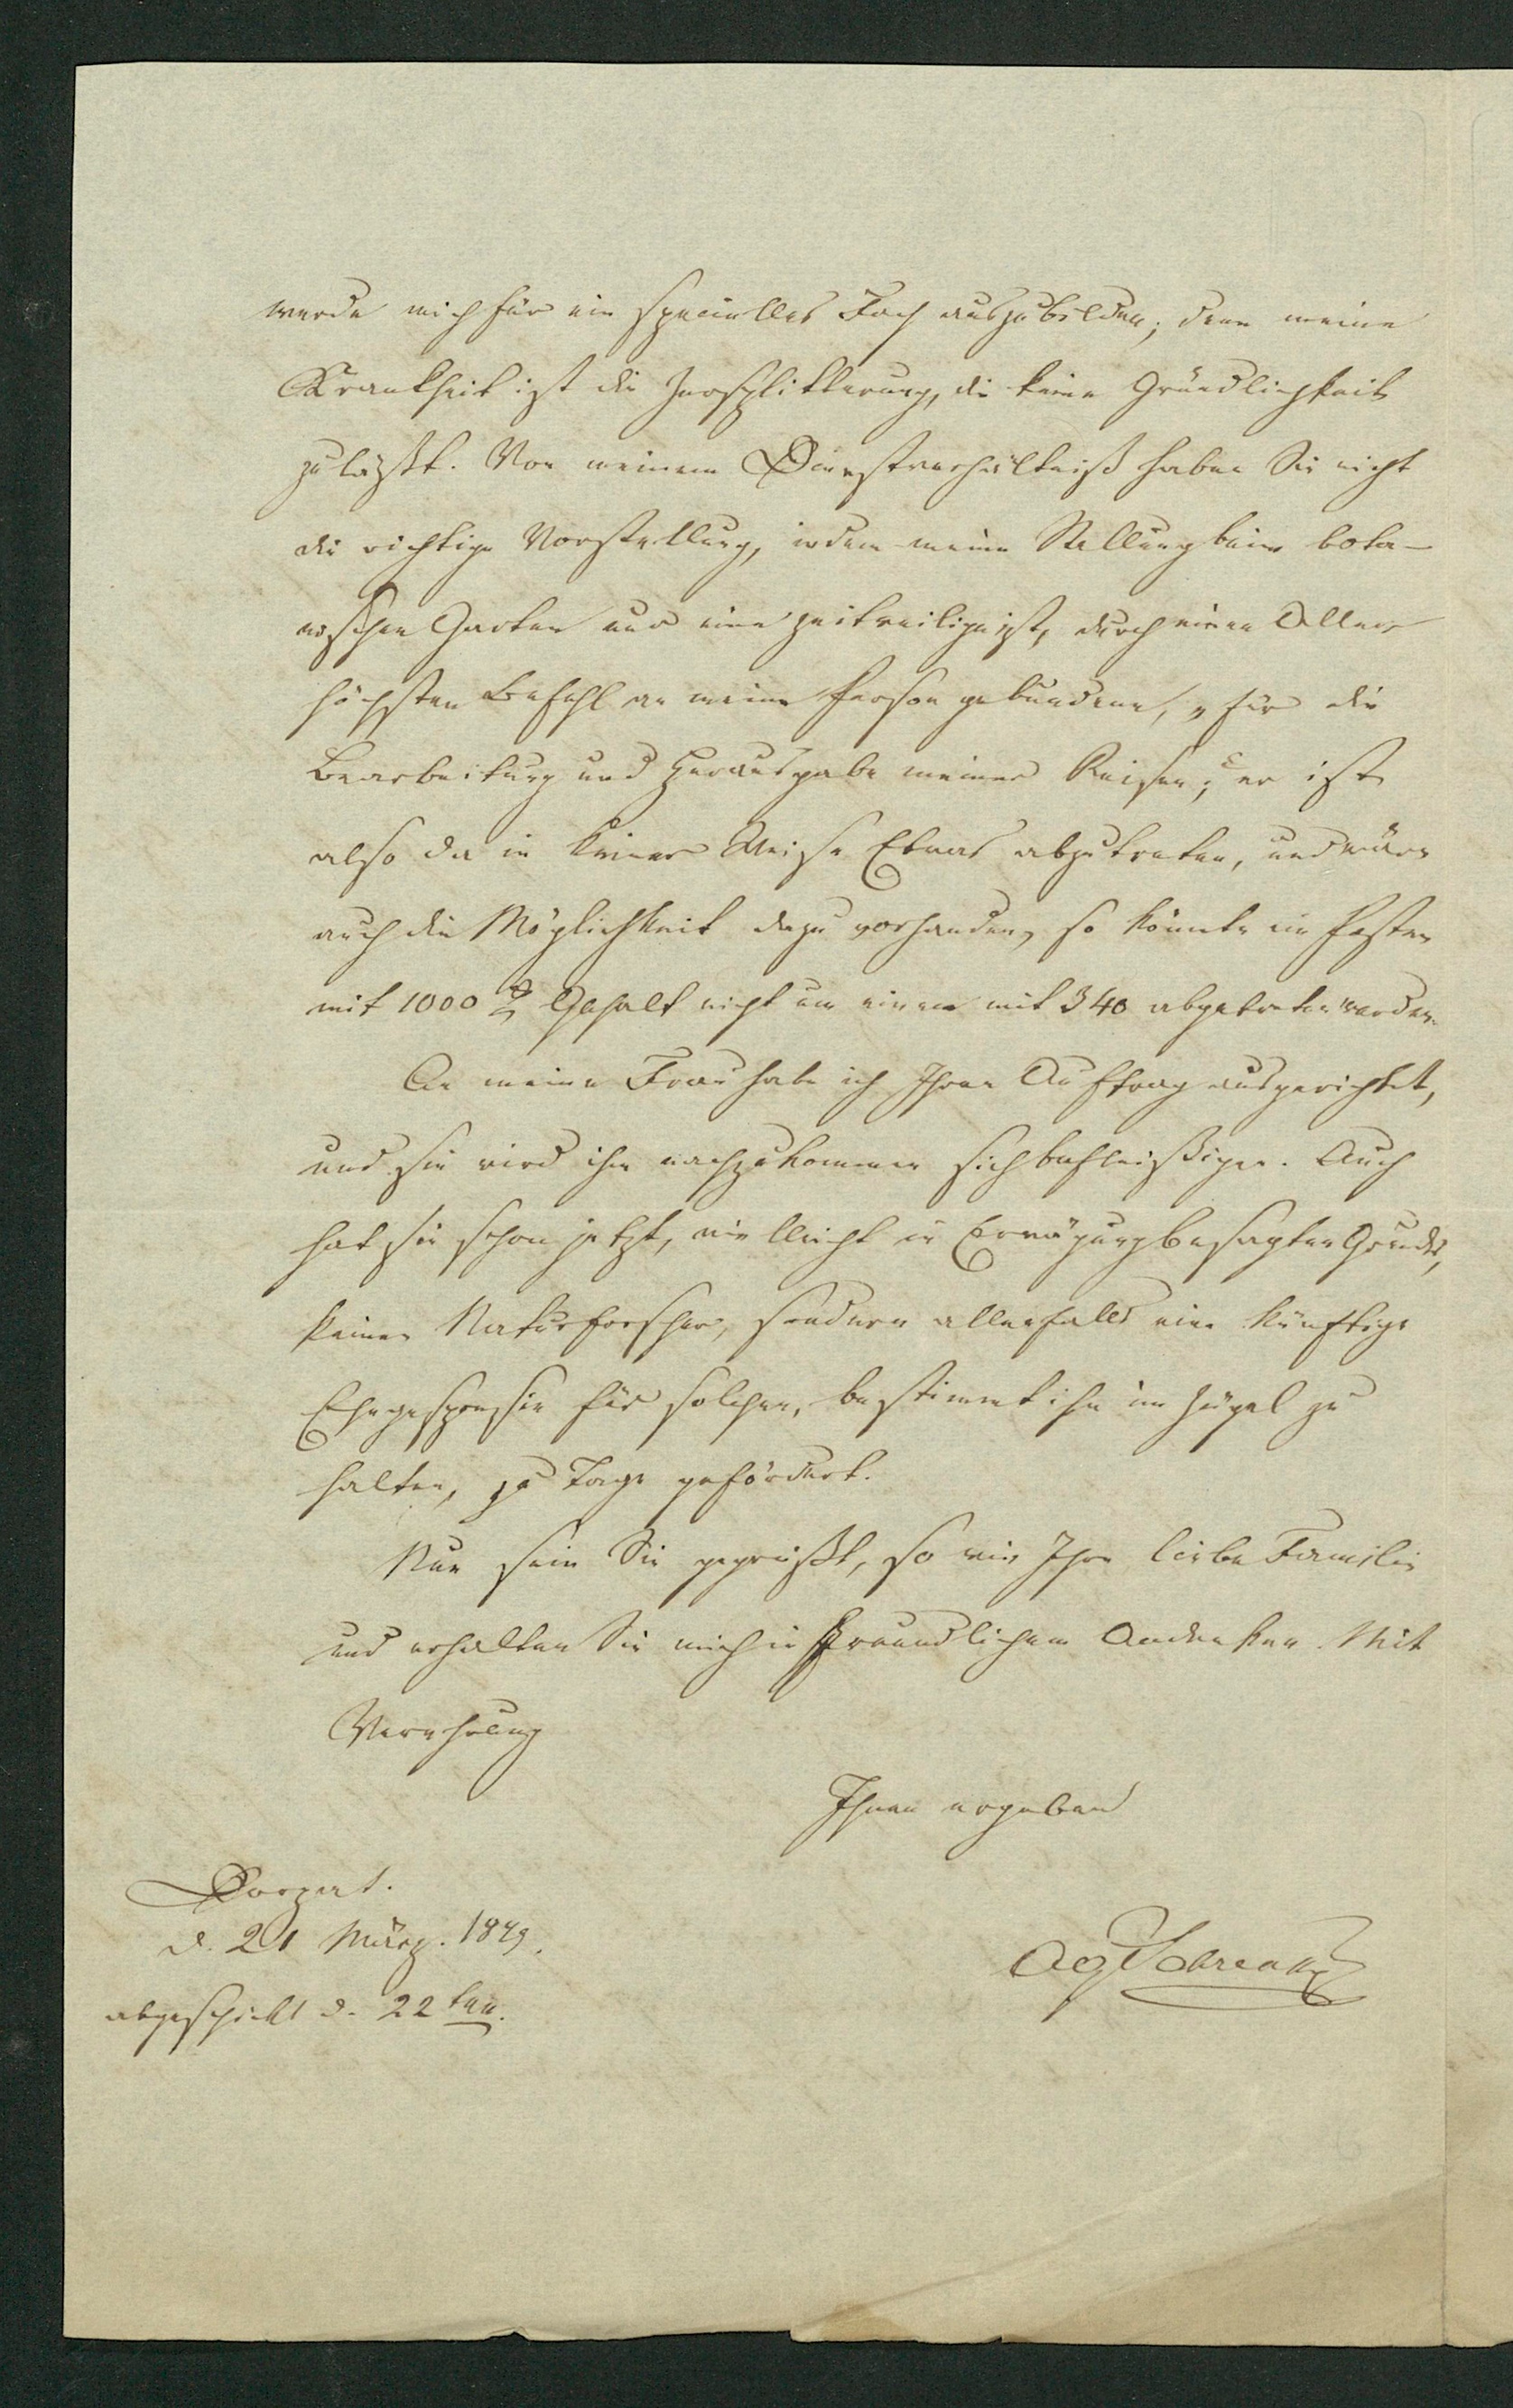 werde mich für ein specielles Fach auszubilden; denn meine
Krankheit ist die Zersplitterung, die keine Gründlichkeit
zuläßt. Von meinem Dienstverhältniß haben Sie nicht
die richtige Vorstellung, indem meine Stellung beim bota-
nischen Garten nur eine zeitweilige ist, durch einen Aller
höchsten Befehl an meine Person gebundene, „für die
Bearbeitung und Herausgabe meiner Reisen;“ es ist
also da in keiner Weise Etwas abzutreten, und wäre
auch die Möglichkeit dazu vorhanden, so könnte ein Posten
mit 1000 Gehalt nicht um einen mit 340 abgetreten werden.
An meine Frau habe ich Ihren Auftrag ausgerichtet,
und sie wird ihm nachzukommen sich befleißigen. Auch
hat sie schon jetzt, vielleicht in Erwägung besagten Grundes,
keinen Naturforscher, sondern allenfalls eine künftige
Ehegesponsin für solchen, bestimmt ihn im Zügel zu
halten, zu Tage gefördert.
Nun sein Sie gegrüßt, so wie Ihre liebe Familie
und erhalten Sie mich in freundlichem Andenken. Mit
Verehrung
Ihnen ergeben
Dorpat.
d. 21 März. 1849.
AG Schrenk
abgeschickt d. 22 ten.